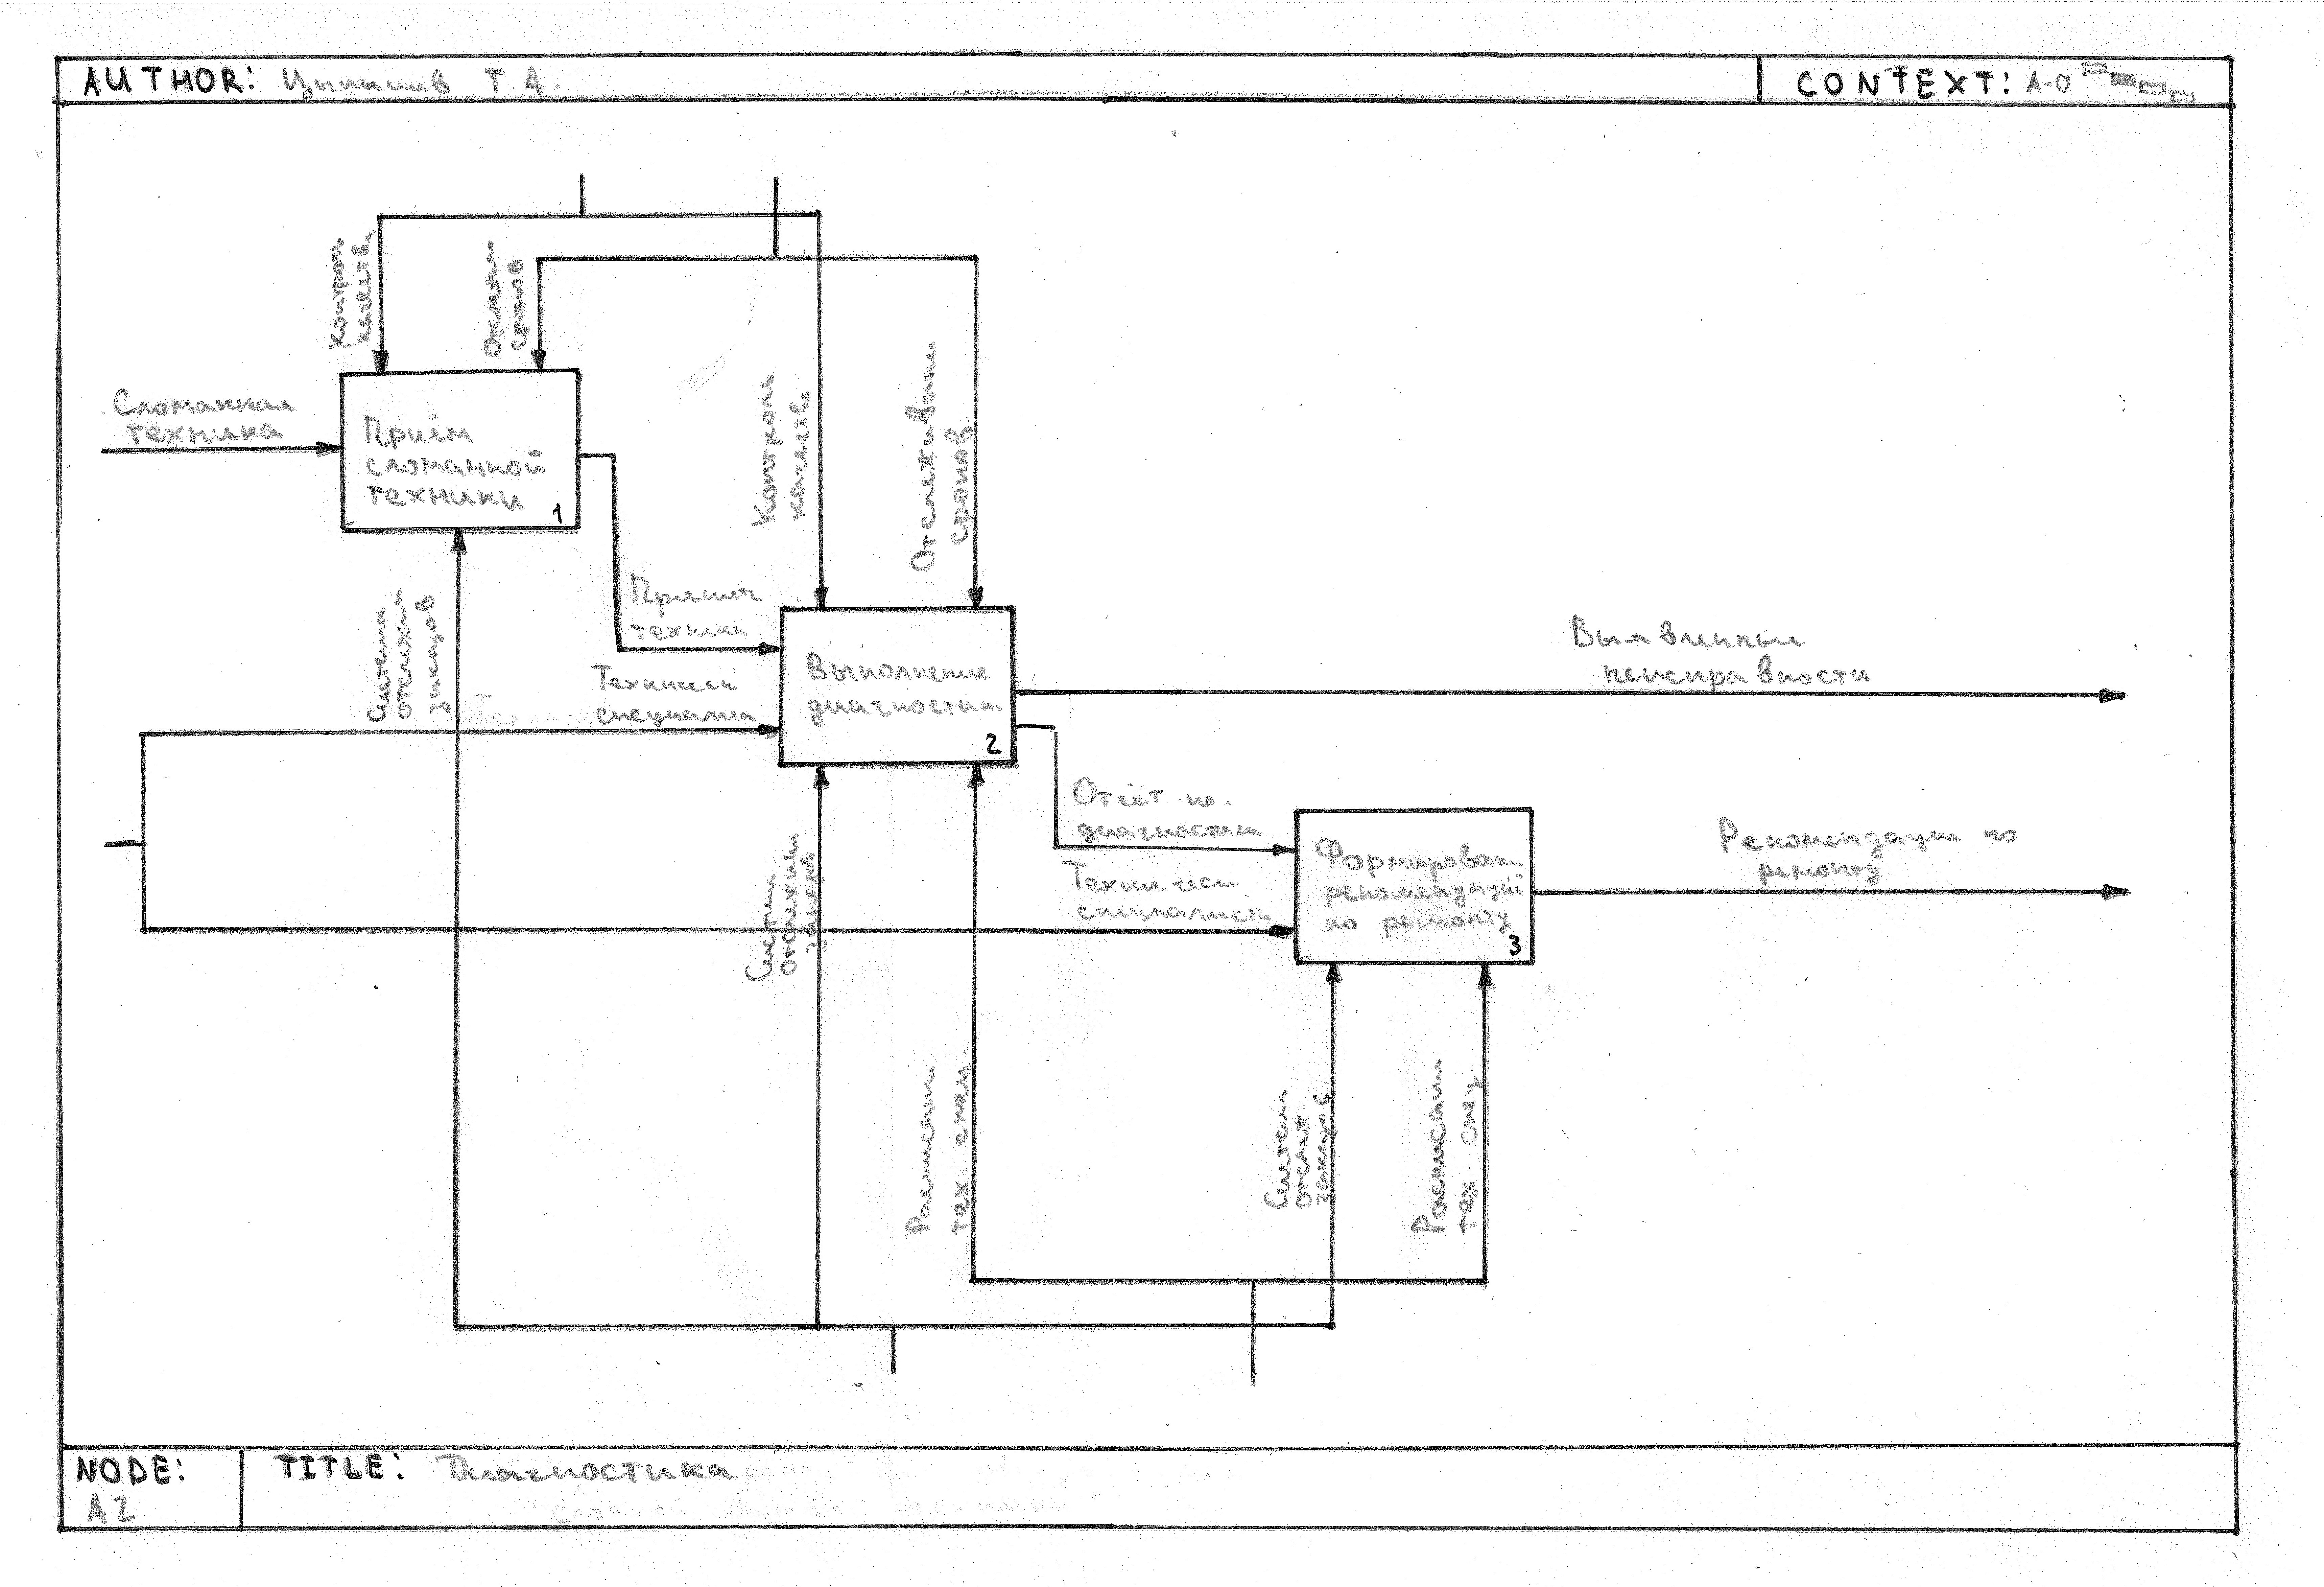 AUTHOR: Цыпышев Т.А.
CONTEXT: A-0
Контроль
качеств
Отслежив
сроков
Сломанная
техника
Приём
сломанной
техники
1
Контроль
качества
Отслеживани
сроков
Система
отслежив
заказов
Принята
техника
Техническ
специалис
Выполнение
диагностик
2
Выявленные
неисправности
Отчёт по
диагностик
Техническ
специалисты
Формировани
рекомендаций
по ремонту
3
Рекомендации по
ремонту
Систем
отслежив
заказов
Расписани
тех. спец.
Систем
отслеж.
заказов
Расписани
тех. спец.
NODE:
A2
TITLE: Диагностика